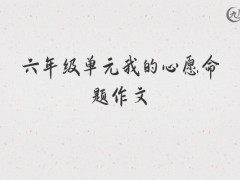 六年级单元我的心愿命
题作文